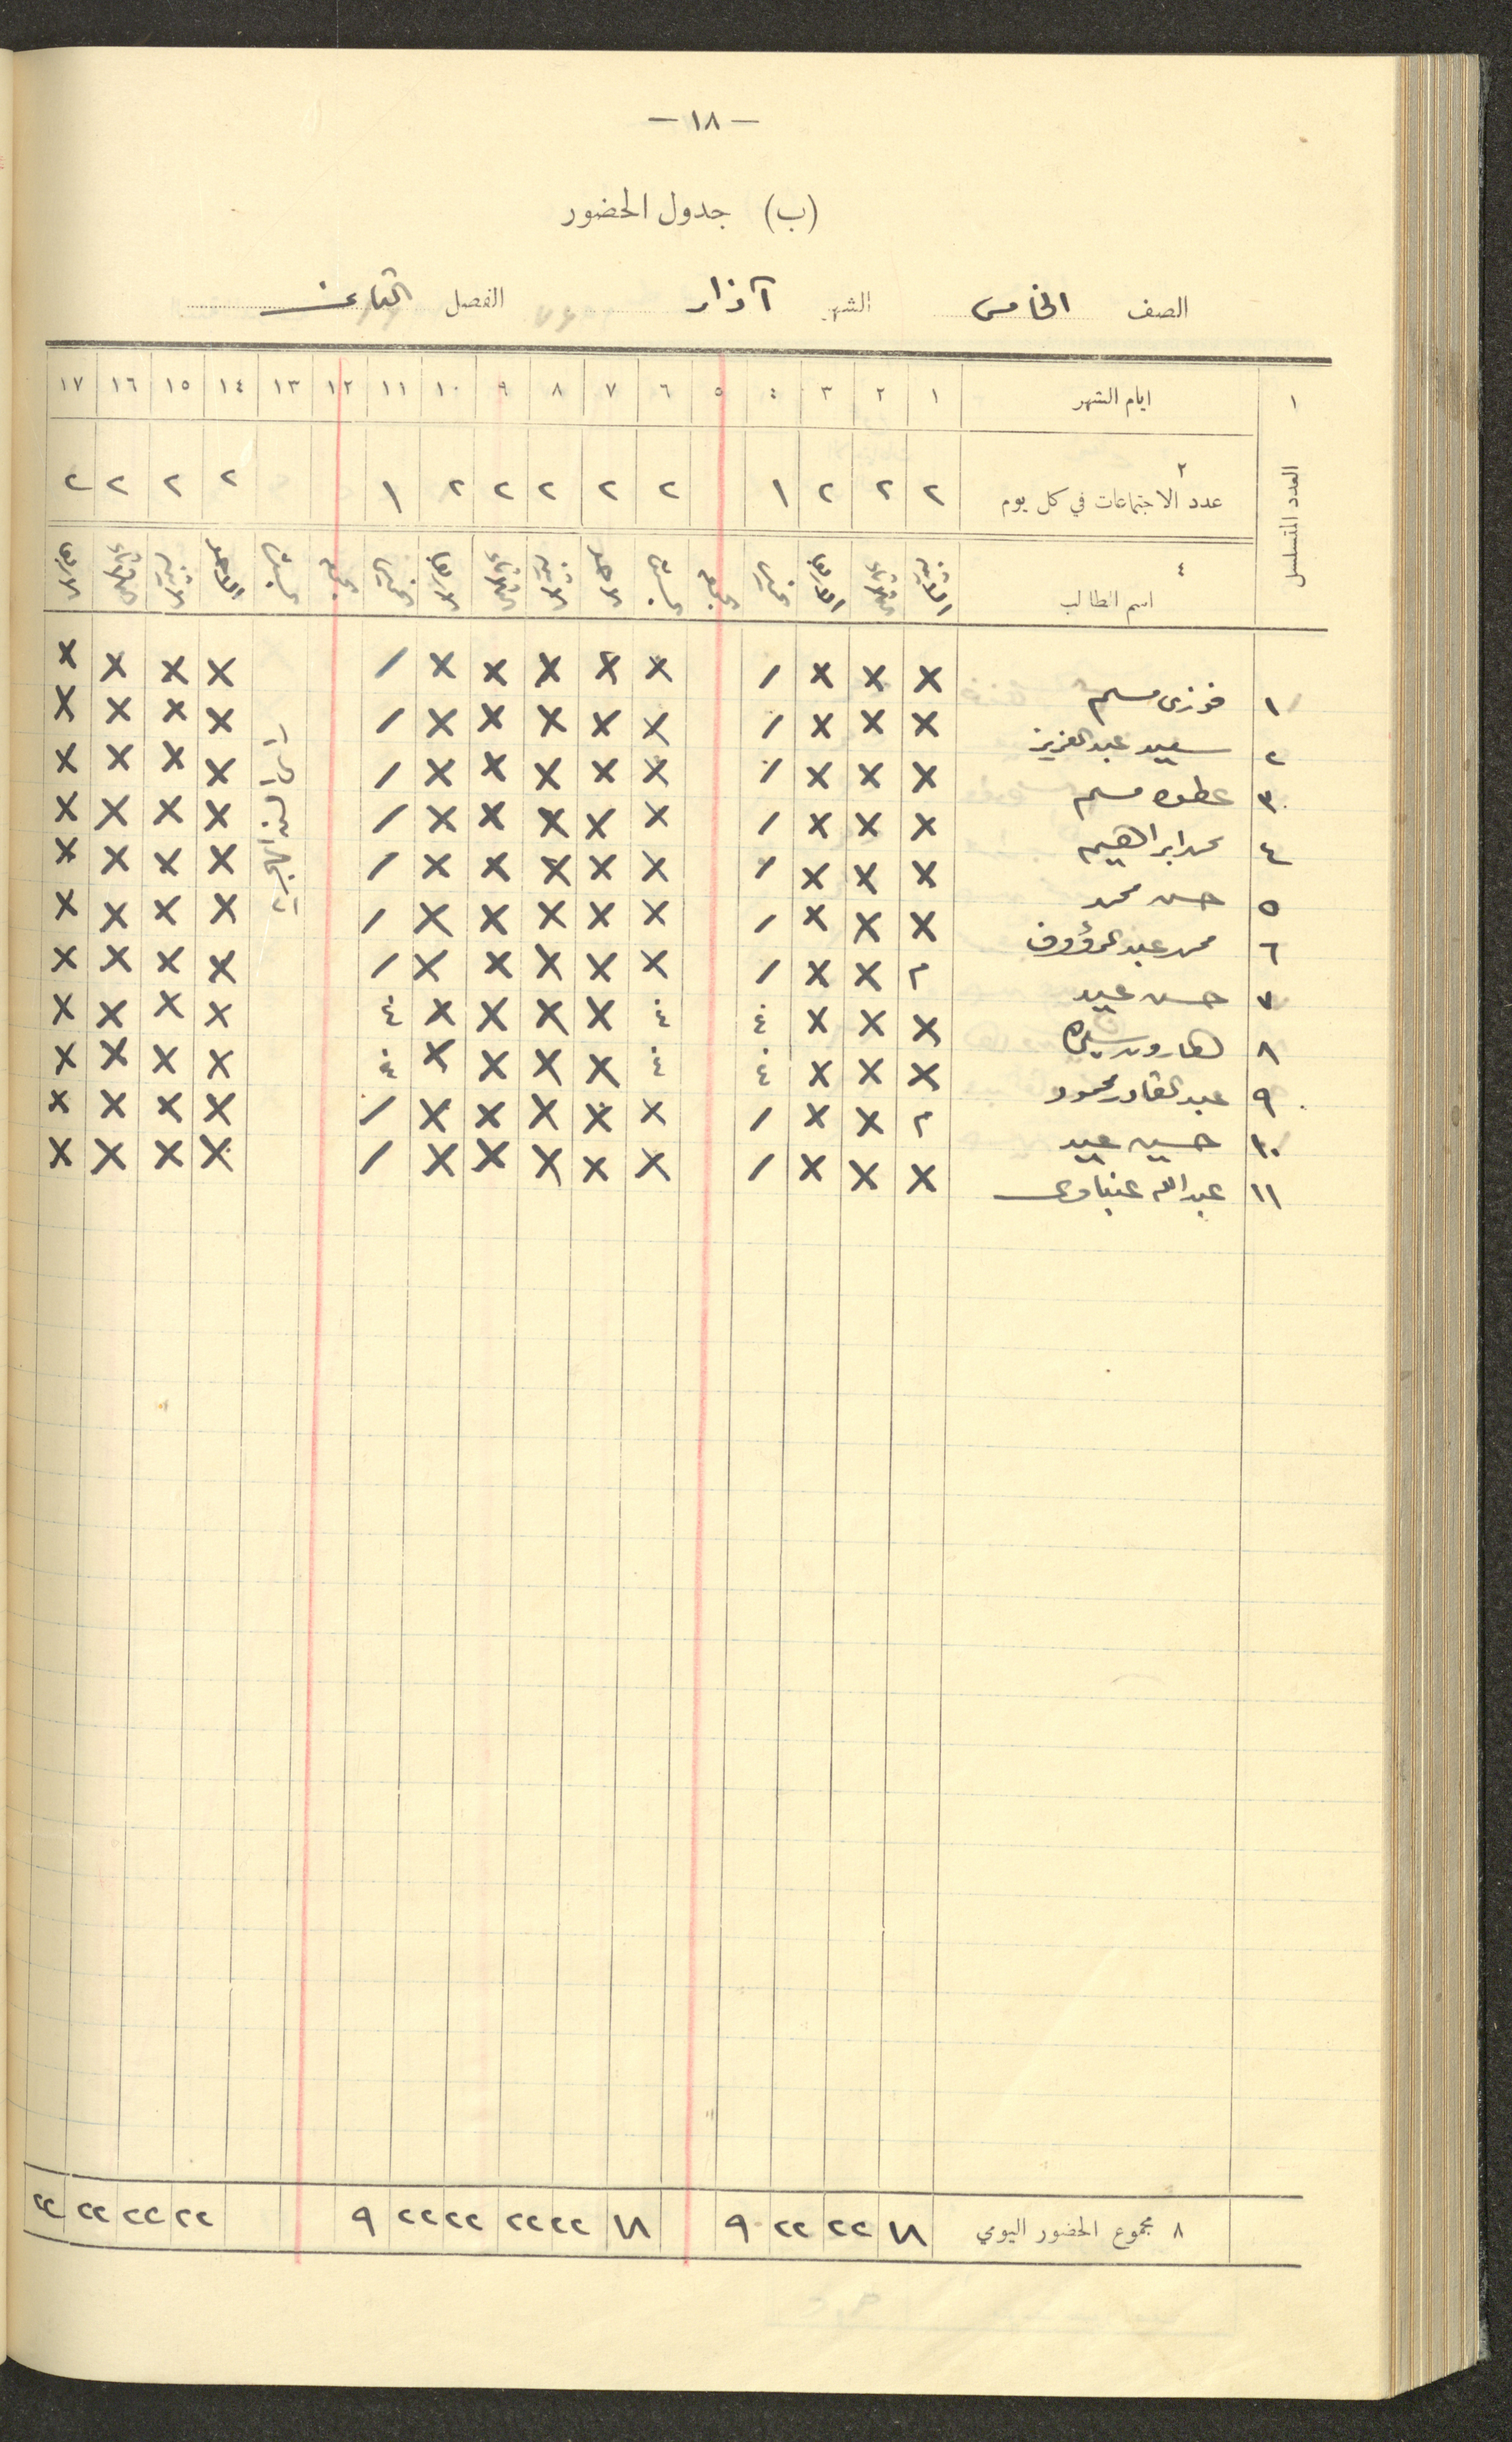 — ١٨ —
(ب) جدول الحضور
الصف الخامس الشهر آذار الفصل الثاني
العدد المتسلسل
١ ايام الشهر ١ ٢ ٣ ٤ ٥ ٦ ٧ ٨ ٩ ١٠ ١١ ١٢ ١٣ ١٤ ١٥ ١٦ ١٧
٢ عدد الاجتماعات في كل يوم ٢ ٢ ٢ ١ ٢ ٢ ٢ ٢ ٢ ١ ٢ ٢ ٢ ٢
٤ اسم الطالب الاثنين الثلاثاء الاربعا الخميس الجمعة السبت الاحد الاثنين الثلاثاء الاربعا الخميس الجمعة السبت الاحد الاثنين الثلاثاء الاربعا
رأس السنة الهجرية
١ فوزي مسلم X X X / X X X X X / X X X X
٢ سعيد عبد العزيز X X X / X X X X X / X X X X
٣ عطوه مسلم X X X / X X X X X / X X X X
٤ محمد ابراهيم X X X / X X X X X / X X X X
٥ حسن محمد X X X / X X X X X / X X X X
٦ محمد عبد الرؤوف X X X / X X X X X / X X X X
٧ حسن عيد م X X / X X X X X / X X X X
٨ هارون X X X غ غ X X X X غ X X X X
٩ عبد القادر محمود X X X غ غ X X X X غ X X X X
١٠ حسين عيد م X X / X X X X X / X X X X
١١ عبد الله عنباوي X X X / X X X X X / X X X X
٨ مجموع الحضور اليومي ١٨ ٢٢ ٢٢ ٩ ١٨ ٢٢ ٢٢ ٢٢ ٢٢ ٩ ٢٢ ٢٢ ٢٢ ٢٢